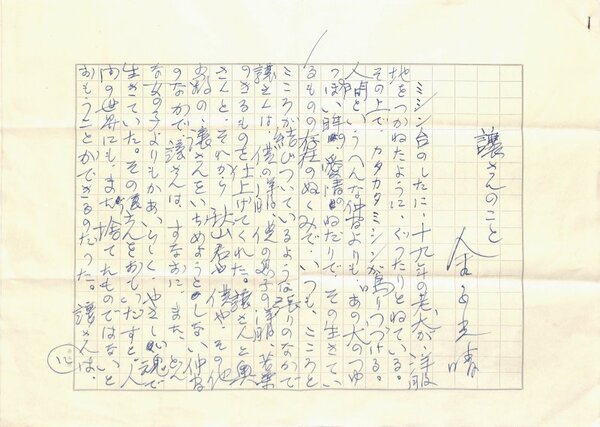 1
譲さんのこと
金子光晴
ミシン台のしたに、十九年の老犬が、洋服
地をつかねたように、ぐったりとねている。
その上で、カタカタミシンが鳴りつづける。
人間というへんな仲間よりも、あの犬のつゆ
っぽい眼の、愛情のねたりで、その生きてい
るものの存在のぬくみで、いつも、こころと
こころが結びついているような家のなかで
譲さんは、僕の洋服、僕の男の子の洋服、若葉
のきるものを仕上げてくれた。譲さんと奥
さんと、それから秋山君や、僕や、その他
お船の、譲さんをいちめようとしない仲間
のなかで、譲さんは、すなおに、また、どん
な女の子よりもかあいらしく、やさしい魂で
生きていた。その譲さんをおもいだすと、人
間の世界にも、まだ捨てたものではないと
おもうことができるのだった。譲さんは、